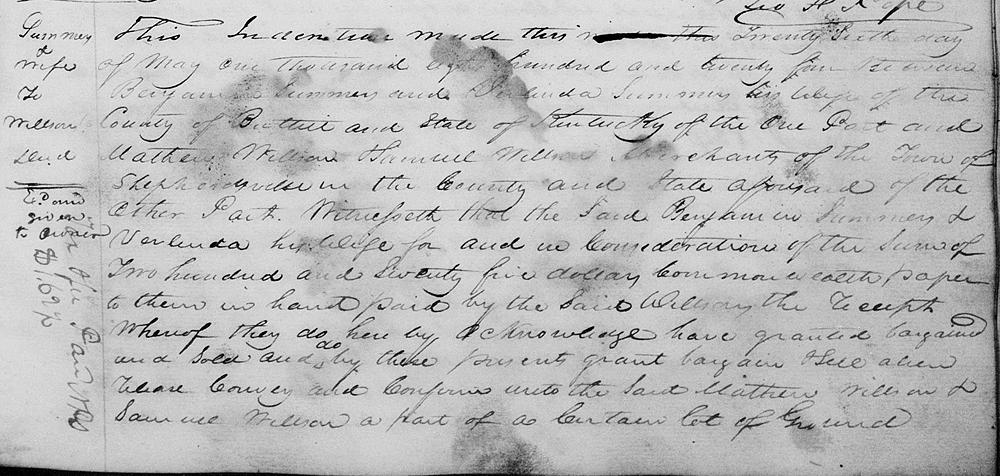 Geo H Pope
Summers
&
Wife
To
Willson
Deed
Exam
given
to owner
This Indenture made this Twenty Sixth day
of May one thousand eight hundred and twenty four Between
Benjamin Summers and Verlinda Summers his Wife of the
County of Bullitt and State of Kentucky of the One Part and
Mathew Willson Samuel Willson Merchants of the Town of
Shepherdsville in the County and State aforsaid of the
Other Part. Witnesseth that the Said Benjamin Summers &
Verlinda his Wife for and in Consideration of the Sum of
Two hundred and Seventy five dollars Commonwealth paper
to them in hand paid by the Said Willsons the Receipt
Whereof they do hereby Acknowledge have granted bargained
and Sold and do by these presents grant bargain & Sell alien
Release Convey and Confirm unto the Said Mathew Willson &
Samuel Willson a part of a Certain lot of Ground